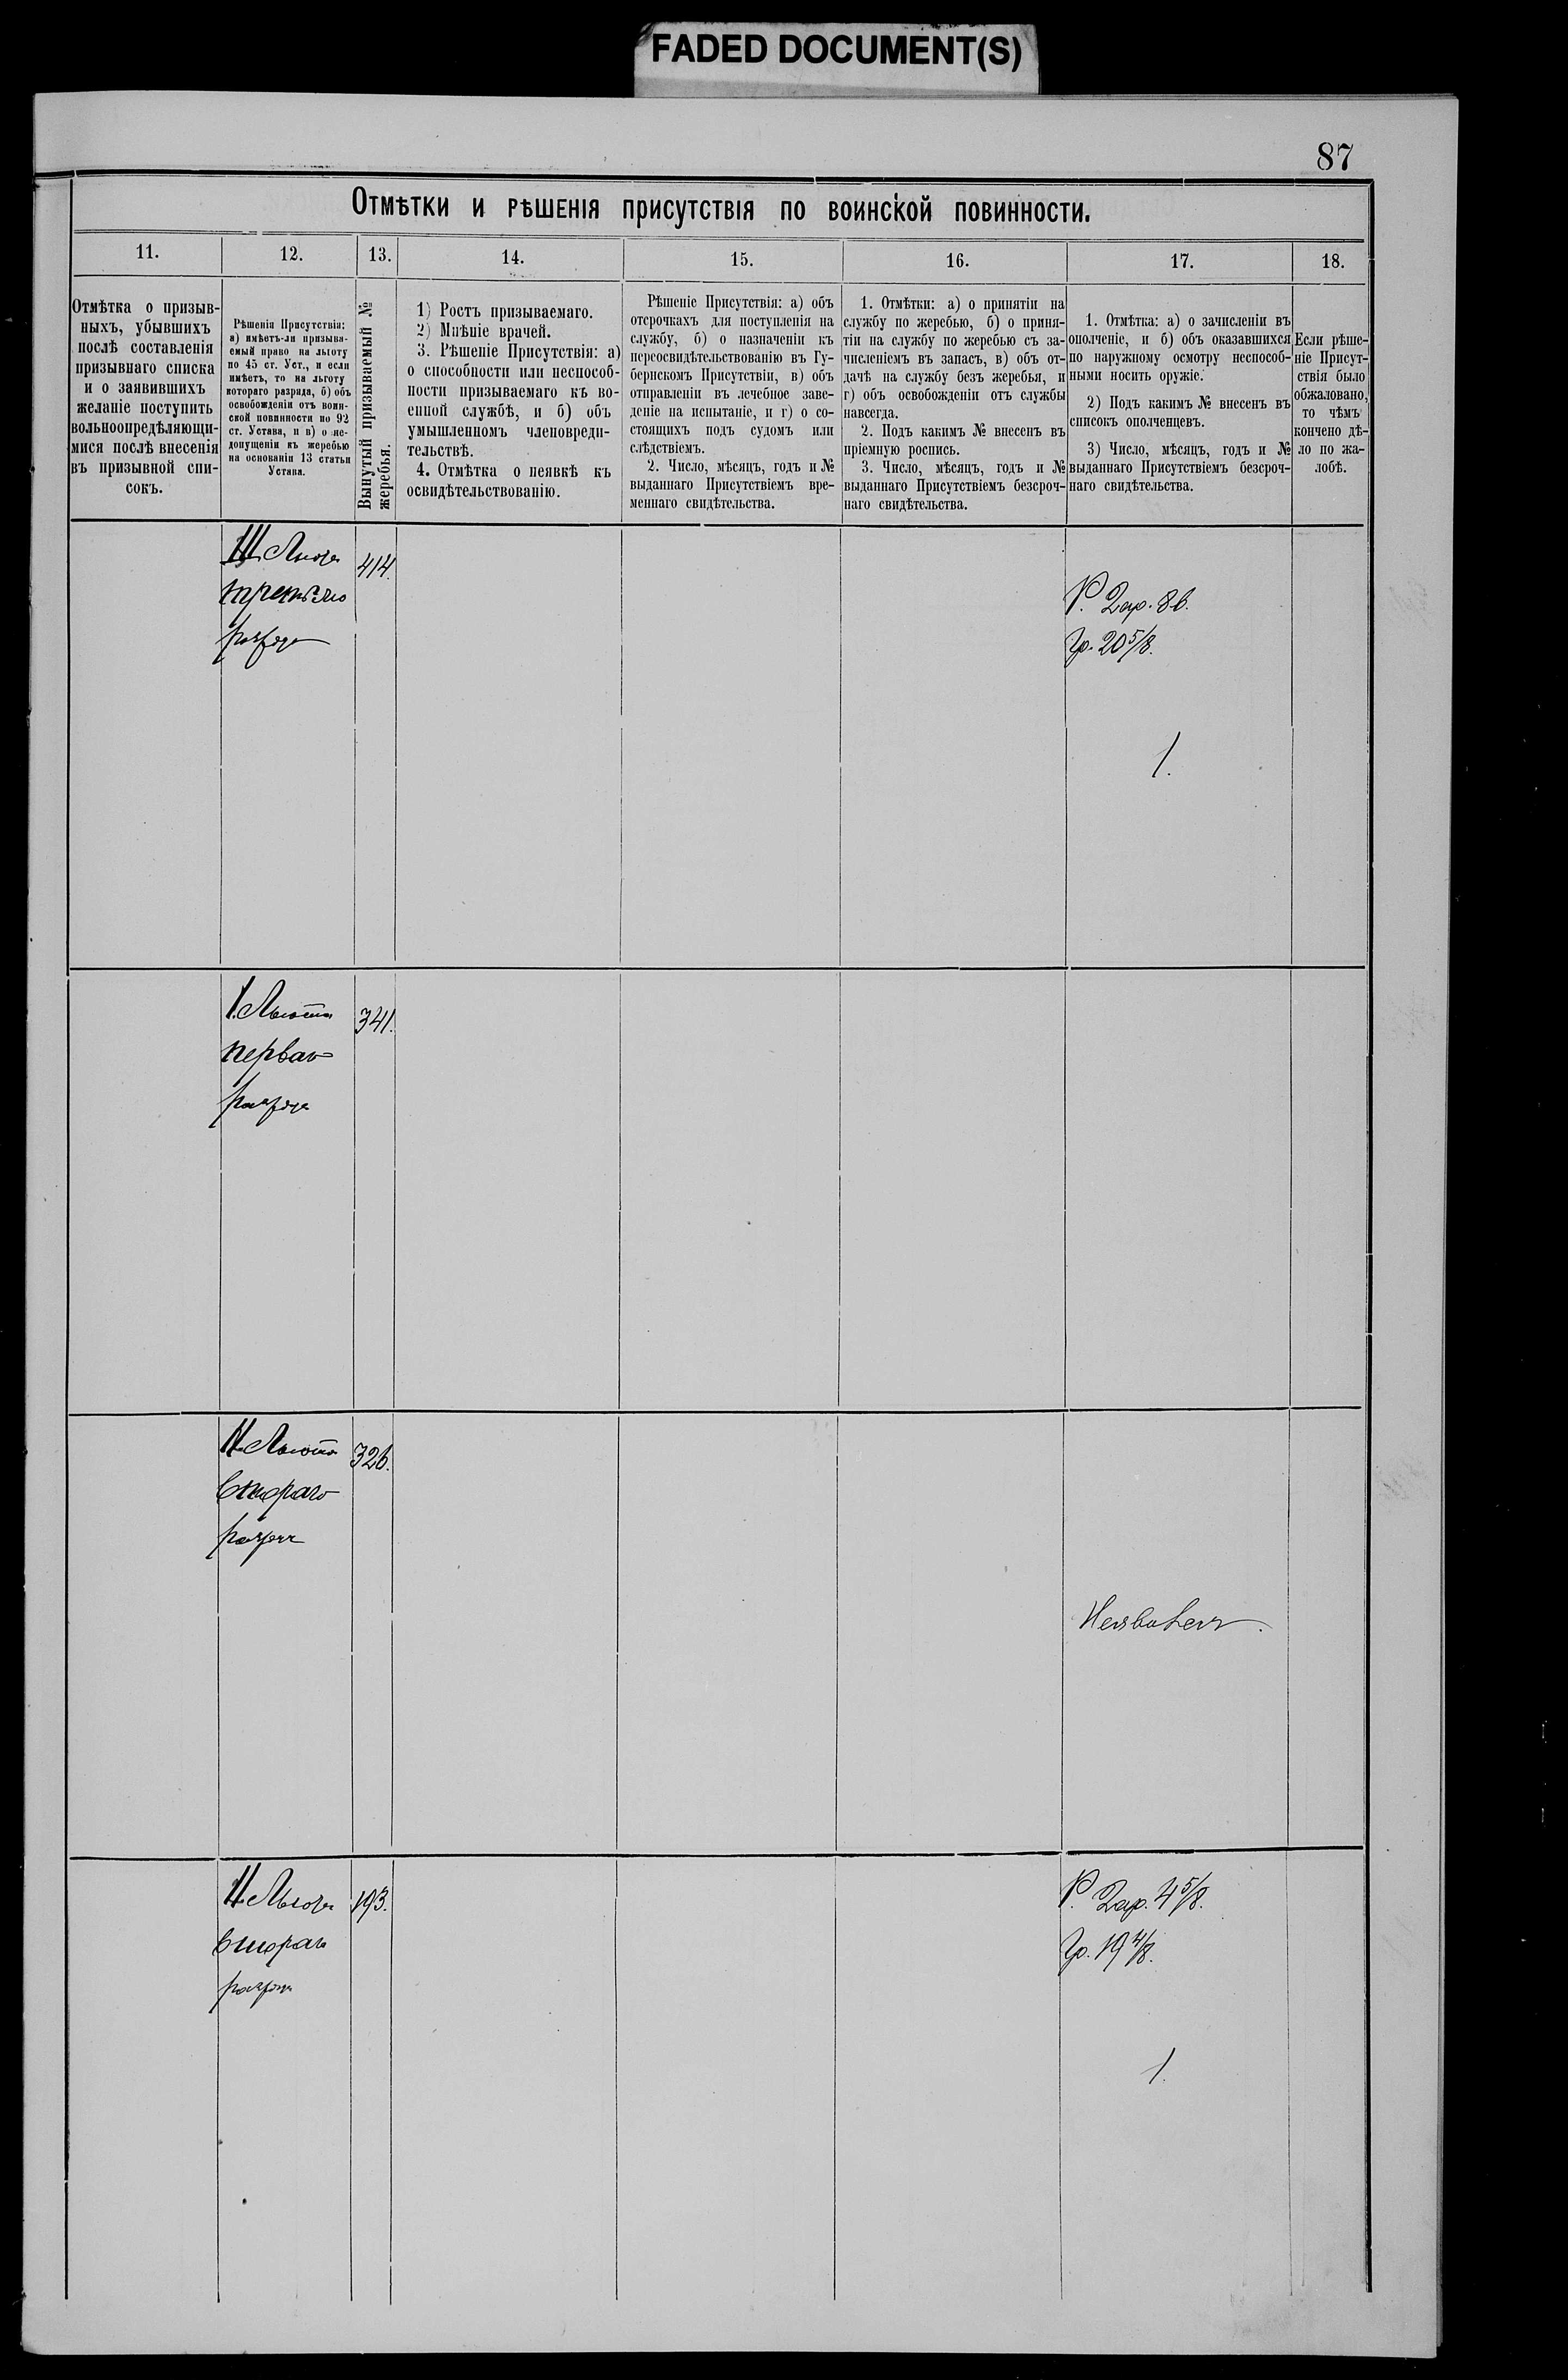 FADED DOCUMENT(S)
87
Отмѣтки и рѣшенія присутствія по воинской повинности.
11.
12.
13.
14.
15.
16.
17.
18.
Отмѣтка о призыв-
ныхъ, убывшихъ
послѣ составленія
призывнаго списка
и о заявившихъ
желаніе поступить
вольноопредѣляющи-
мися послѣ внесенія
въ призывной спи-
сокъ.
Рѣшенія Присутствія:
а) имѣетъ-ли призыва-
емый право на льготу
по 45 ст. Уст., и если
имѣетъ, то на льготу
котораго разряда, б) объ
освобожденіи отъ воин-
ской повинности по 92
ст. Устава, и в) о не-
допущеніи къ жеребью
на основаніи 13 статьи
Устава.
Вынутый призываемый №
жеребья.
1) Ростъ призываемаго.
2) Мнѣніе врачей.
3. Рѣшеніе Присутствія: а)
о способности или неспособ-
ности призываемаго къ во-
енной службѣ, и б) объ
умышленномъ членовреди-
тельствѣ.
4. Отмѣтка о неявкѣ къ
освидѣтельствованію.
Рѣшеніе Присутствія: а) объ
отсрочкахъ для поступленія на
службу, б) о назначеніи къ
переосвидѣтельствованію въ Гу-
бернскомъ Присутствіи, в) объ
отправленіи въ лечебное заве-
деніе на испытаніе, и г) о со-
стоящихъ подъ судомъ или
слѣдствіемъ.
2. Число, мѣсяцъ, годъ и №
выданнаго Присутствіемъ вре-
меннаго свидѣтельства.
1. Отмѣтки: а) о принятіи на
службу по жеребью, б) о приня-
тіи на службу по жеребью съ за-
численіемъ въ запасъ, в) объ от-
дачѣ на службу безъ жеребья, и
г) объ освобожденіи отъ службы
навсегда.
2. Подъ какимъ № внесенъ въ
пріемную роспись.
3. Число, мѣсяцъ, годъ и №
выданнаго Присутствіемъ безсроч-
наго свидѣтельства.
1. Отмѣтка: а) о зачисленіи въ
ополченіе, и б) объ оказавшихся
по наружному осмотру неспособ-
ными носить оружіе.
2) Подъ какимъ № внесенъ въ
списокъ ополченцевъ.
3) Число, мѣсяцъ, годъ и №
выданнаго Присутствіемъ безсроч-
наго свидѣтельства.
Если рѣше-
ніе Присут-
ствія было
обжаловано,
то чѣмъ
кончено дѣ-
ло по жа-
лобѣ.
III Льгота
третьяго
разряда
414.
Р. 2 ар. 8 в.
Гр. 20 5/8.
1.
I. Льгота
перваго
разряда
341.
II Льгота
втораго
разряда
326.
Неявился.
II Льгота
втораго
разряда
193.
Р. 2 ар. 4 5/8.
Гр. 19 4/8.
1.